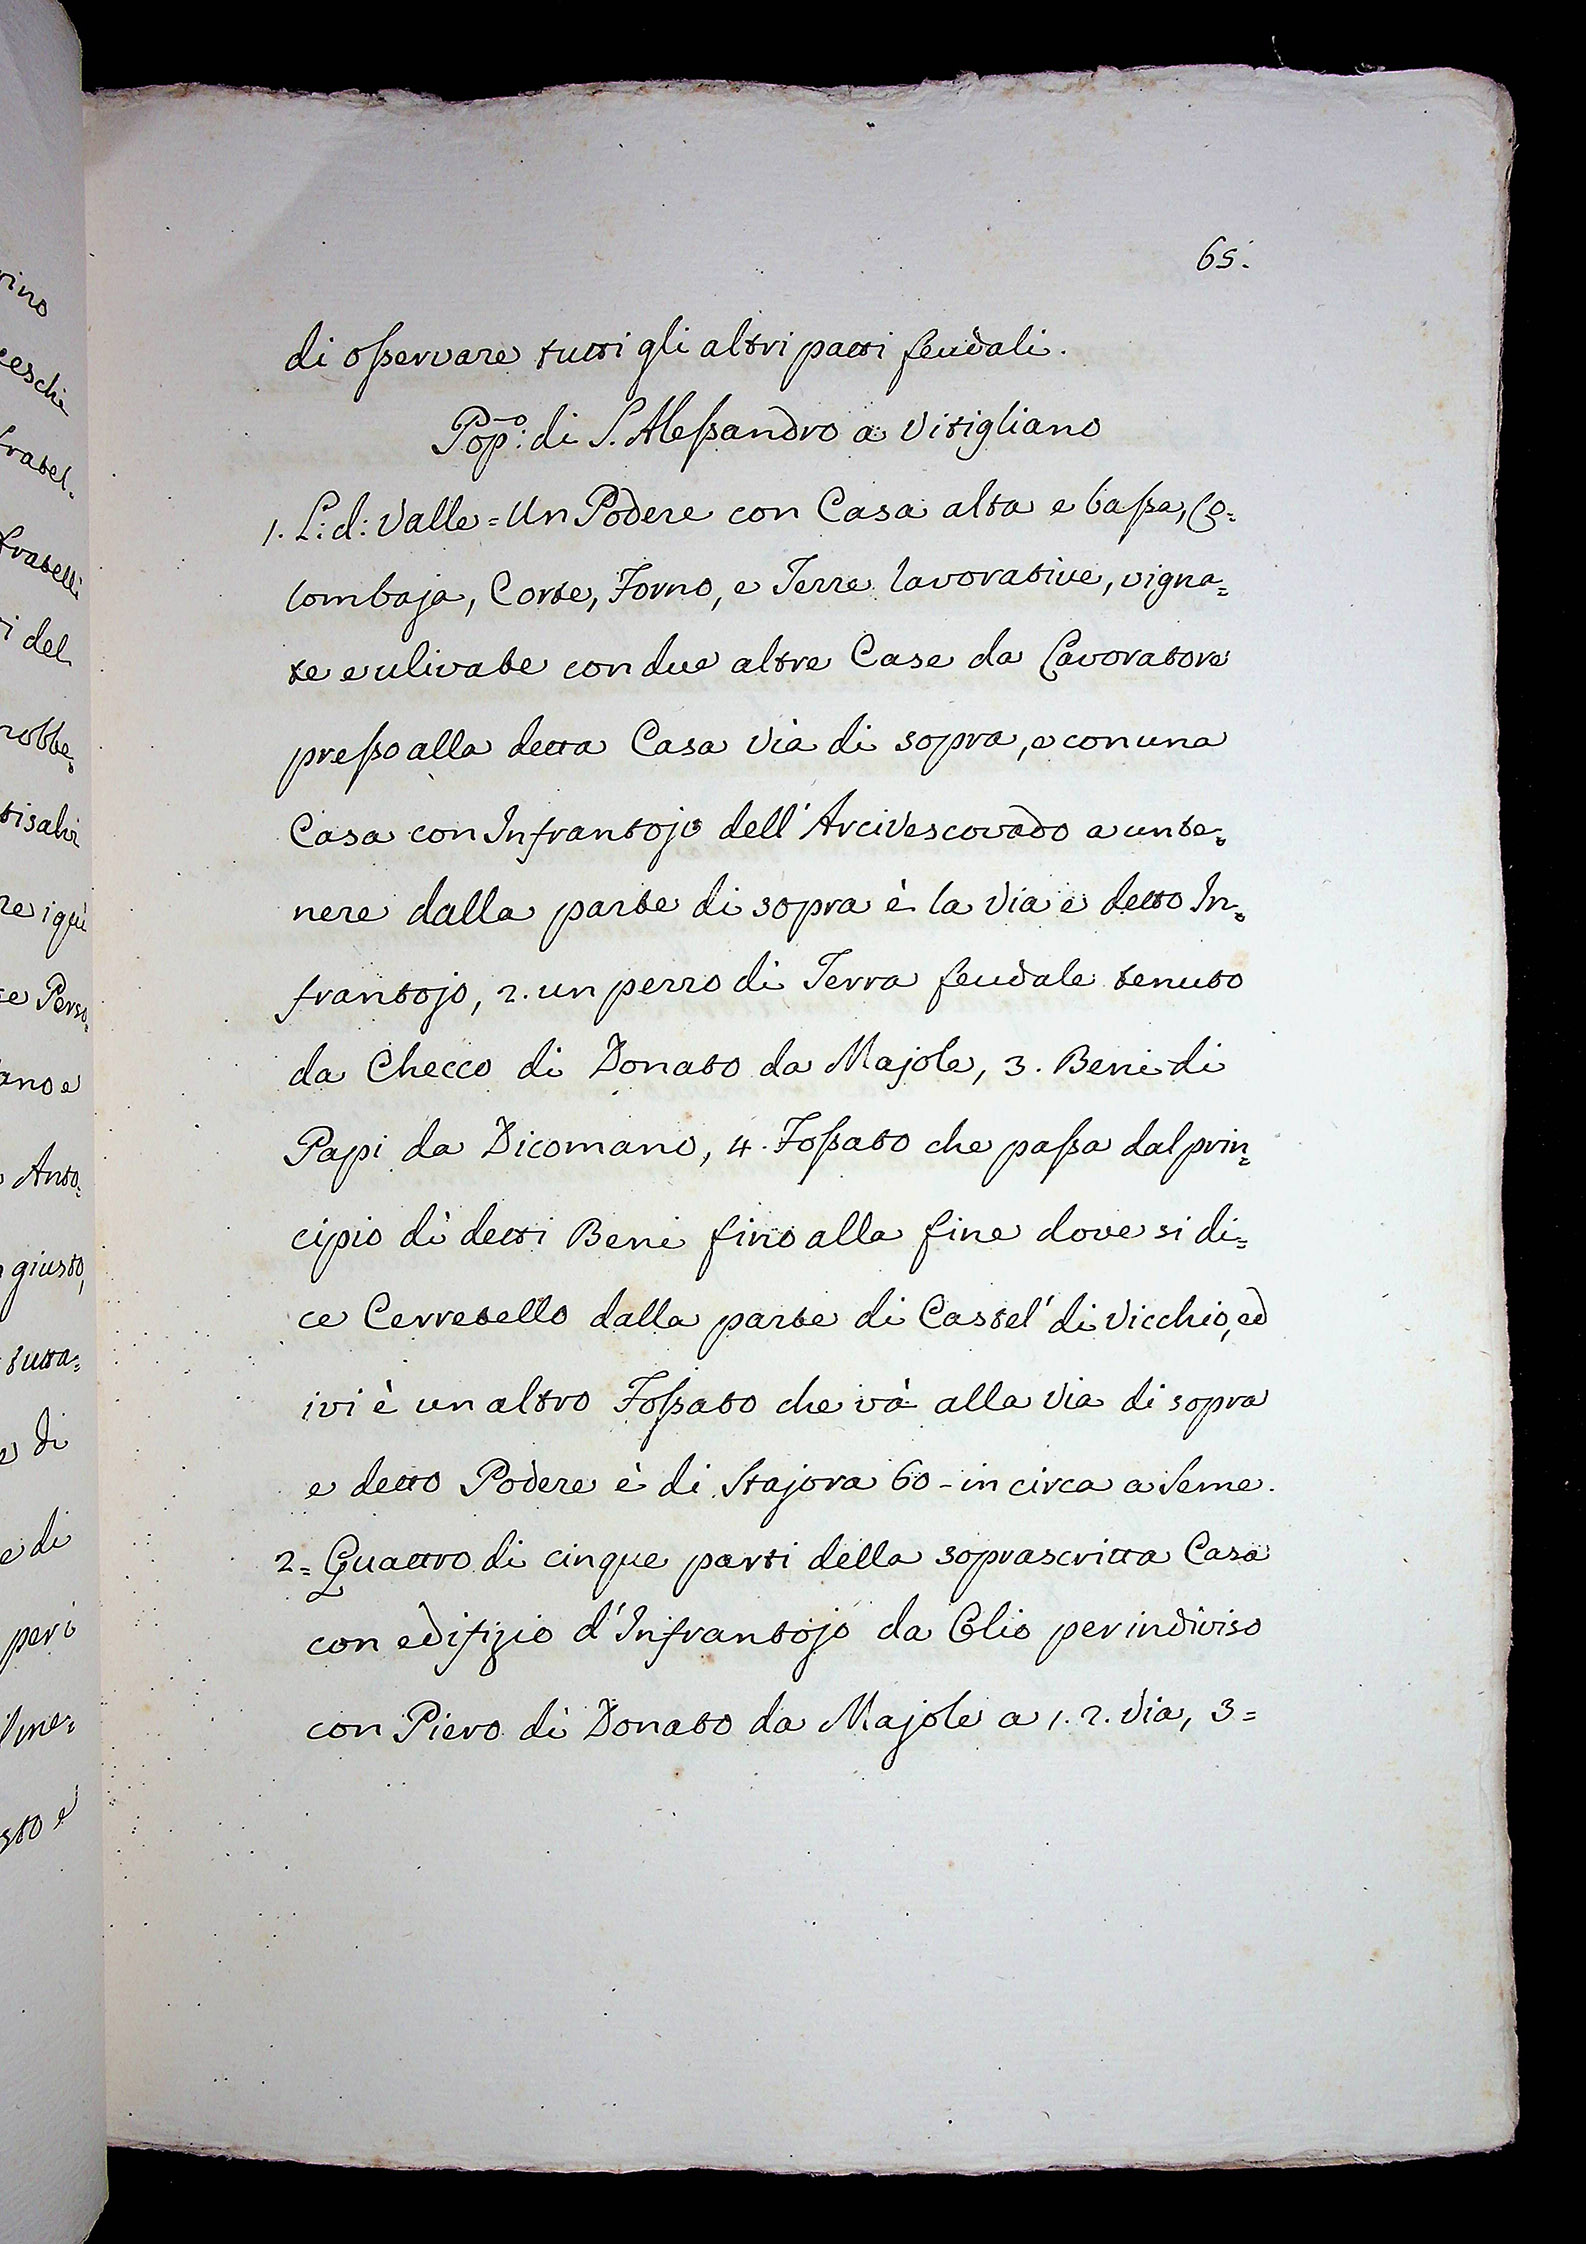 65.
di osservare tutti gli altri patti feudali.
Pop.o: di S. Alessandro a Vitigliano
1. L: d: Valle = Un Podere con Casa alta e bassa, Co=
lombaja, Corte, Forno, e Terre lavorative, vigna=
te e ulivate con due altre Case da Lavoratore
presso alla detta Casa via di sopra, e con una
Casa con Infrantojo dell' Arcivescovado a un te=
nere dalla parte di sopra è la Via e detto In=
frantojo, 2. un pezzo di Terra feudale tenuto
da Checco di Donato da Majole, 3. Beni di
Papi da Dicomano, 4. Fossato che passa dal prin=
cipio di detti Beni fino alla fine dove si di=
ce Cerretello dalla parte di Castel' di Vicchio, ed
ivi è un altro Fossato che và alla Via di sopra
e detto Podere è di Stajora 60 - in circa a Seme.
2 = Quattro di cinque parti della soprascritta Casa
con edifizio d' Infrantojo da Olio per indiviso
con Piero di Donato da Majole a 1. 2. Via, 3=
rino
ceschi
fratel=
fratelli
i del
nobbe=
tisalvi
re i qui
te Perso=
ano e
Anto=
giusto,
tutta=
e di
e di
per i
il me=
sto e